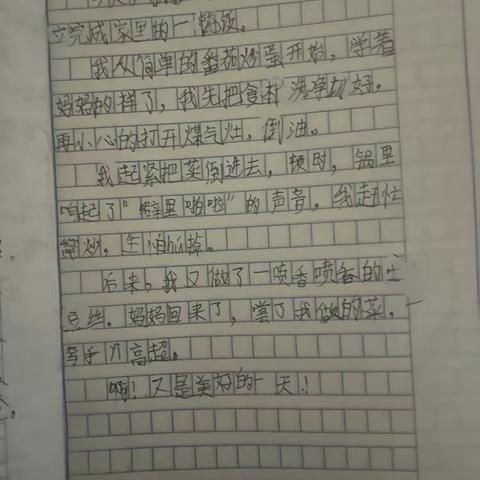 立完成家里的一顿饭。
我从简单的番茄炒蛋开始，学着
妈妈的样了，我先把食材洗净切好。
再小心的打开煤气灶，倒油。
我赶紧把菜倒进去，顿时，锅里
响起了“噼里啪啦”的声音，我赶忙
翻炒，生怕煳掉。
后来，我又做了一喷香喷香的土
豆丝。妈妈回来了，尝了我做的菜，一
夸手艺高超。
啊！又是美好的一天！